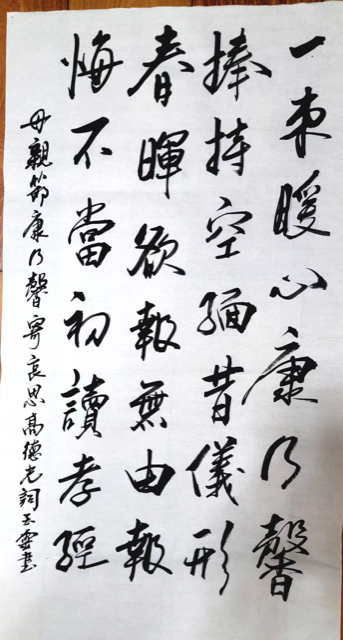 一束暖心康乃馨
捧持空缅昔儀形
春暉欲報無由報
悔不當初讀孝經
母親節康乃馨寄哀思高德光詞玉雲書